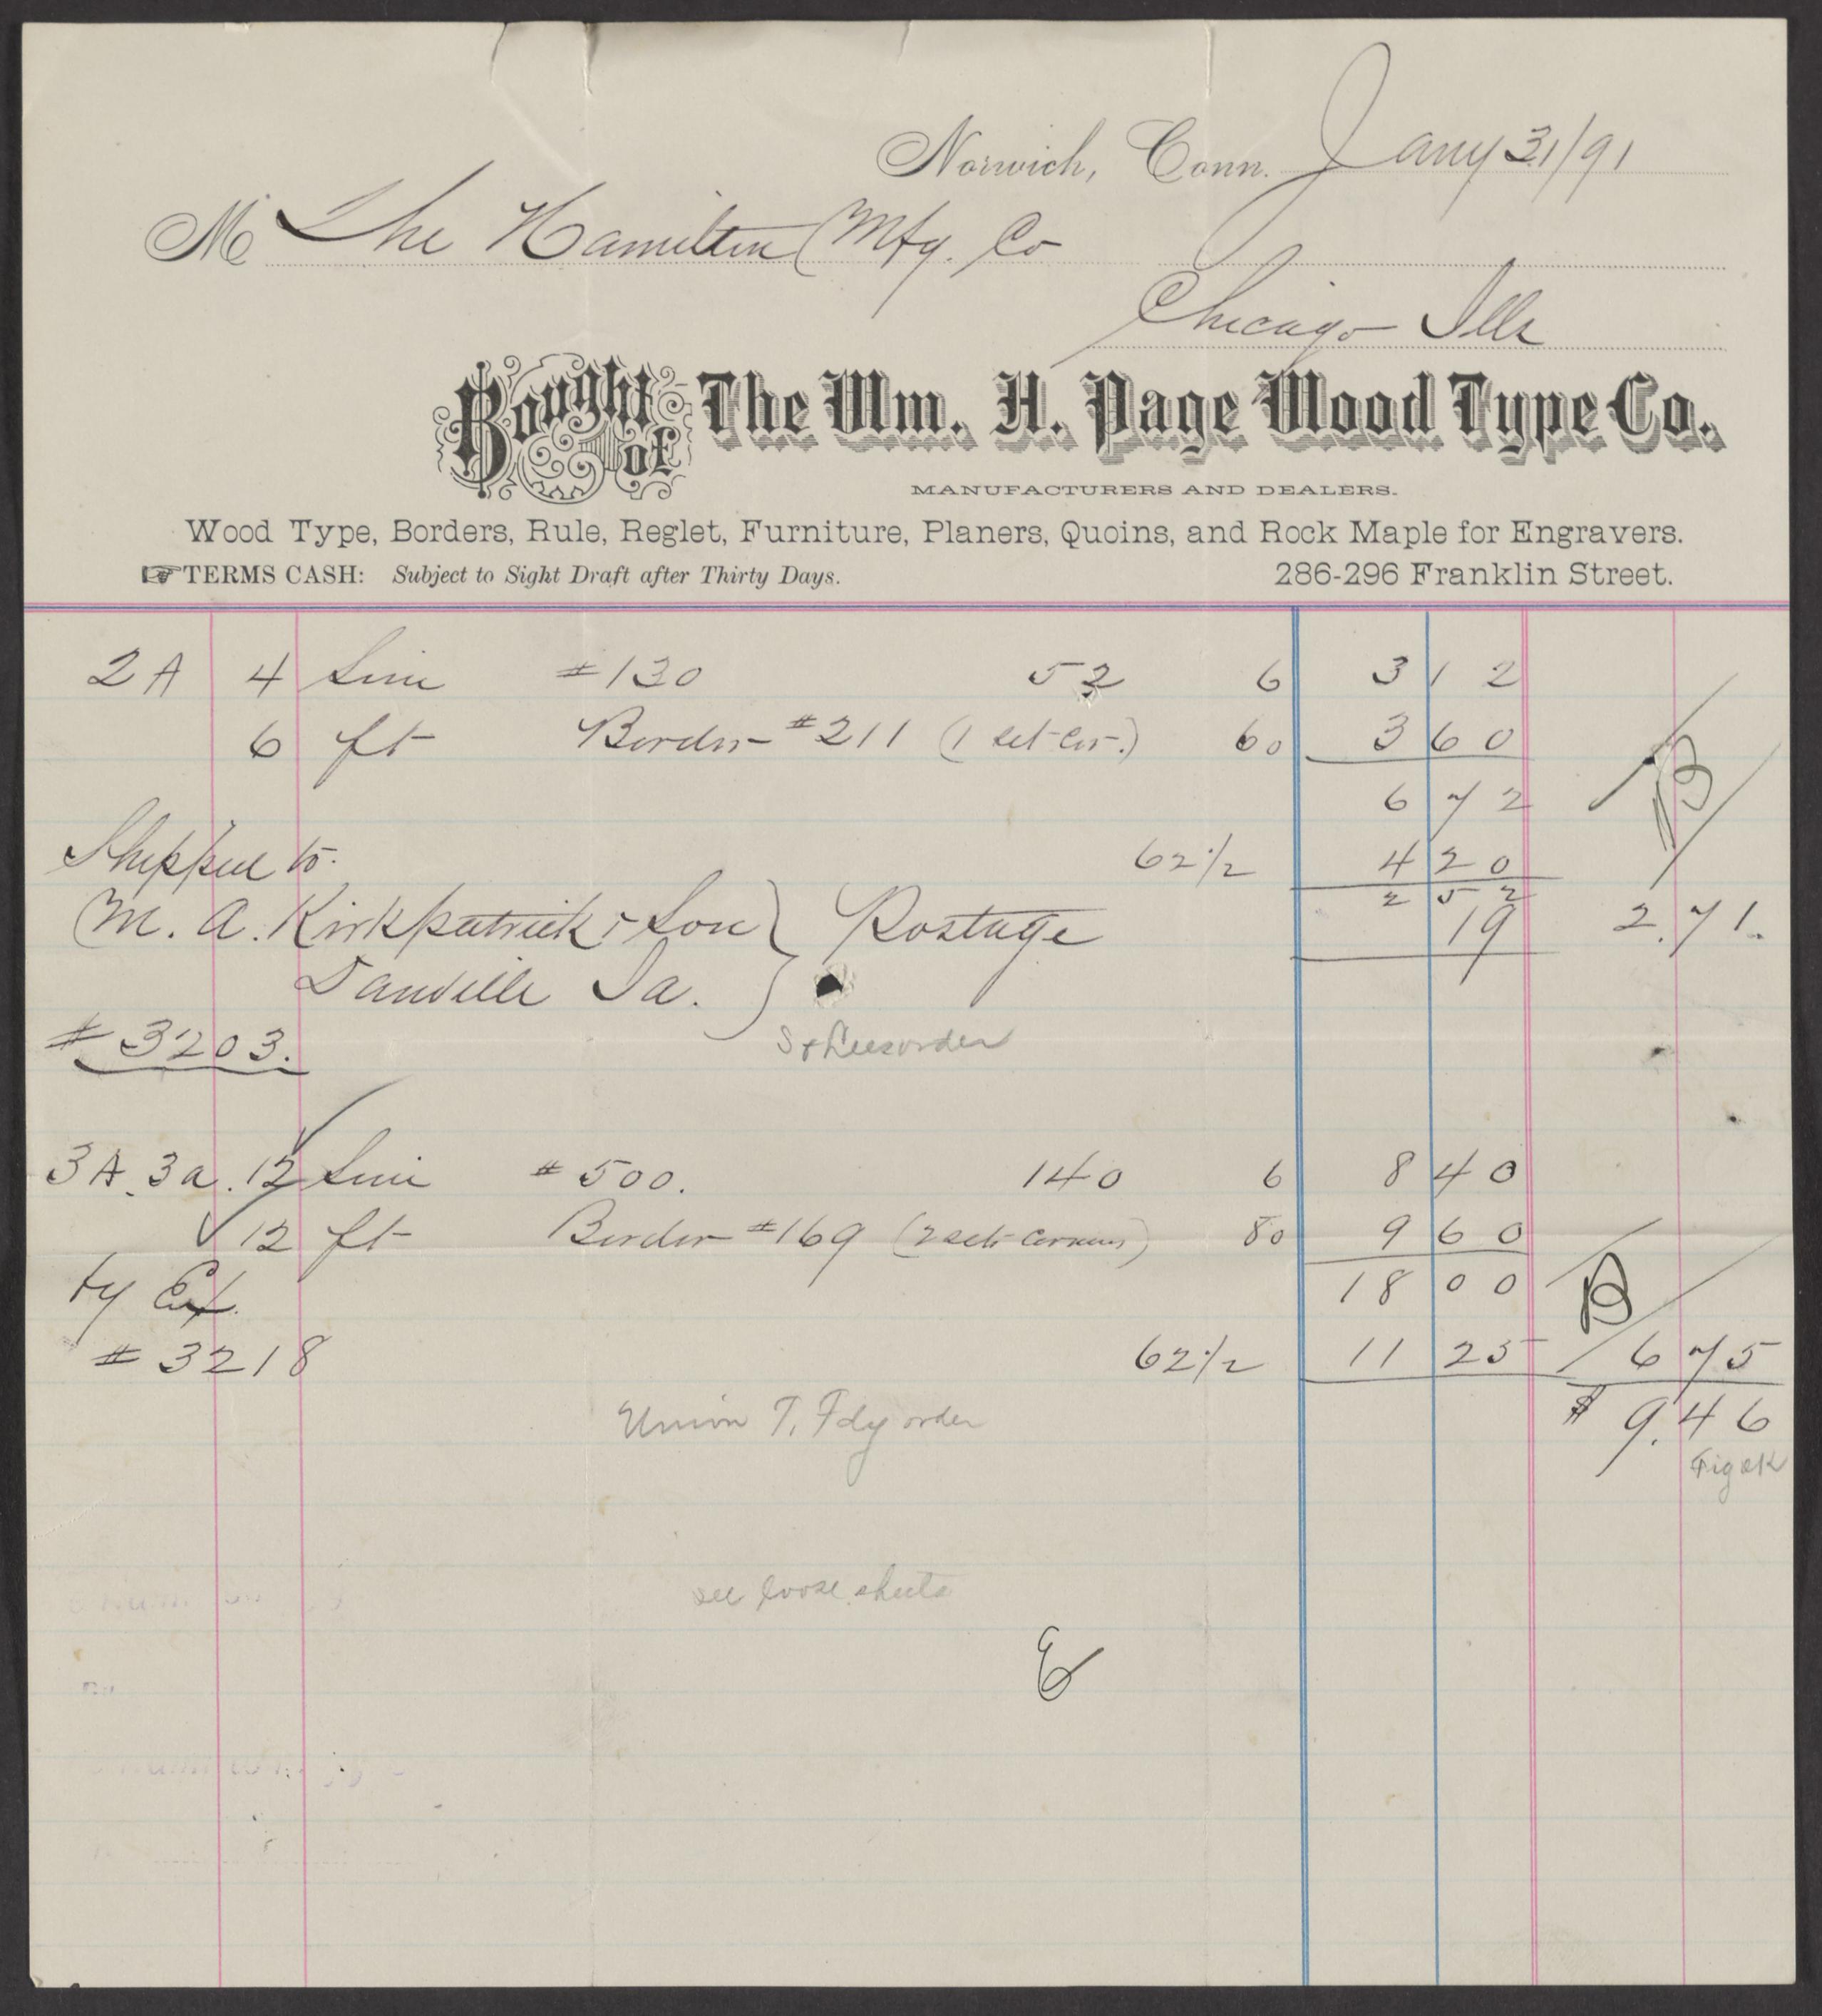 Norwich, Conn. Jany 31/91
M The Hamilton Mfg. Co
Chicago Ills
Bought of The Wm. H. Page Wood Type Co.
MANUFACTURERS AND DEALERS.
Wood Type, Borders, Rule, Reglet, Furniture, Planers, Quoins, and Rock Maple for Engravers.
☞TERMS CASH: Subject to Sight Draft after Thirty Days. 286-296 Franklin Street.
2A 4 Line #130 52 6 3 12
6 ft Border #211 (1 set Cor.) 60 3 60
6 72
Shipped to 62 1/2 4 20
2 52
M. A. Kirkpatrick & Son } Postage 19 2.71.
Danville Ia.
#3203.
order
3A. 3a. 12 Line #500. 140 6 8 40
12 ft Border #169 (2 sets Corners) 80 9 60
18 00
by Ex.
#3218 62 1/2 11 25 6 75
$ 9.46
Union T. Fdy order
Fig OK
see loose sheets